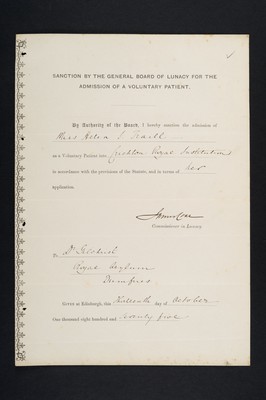 SANCTION BY THE GENERAL BOARD OF LUNACY FOR THE
ADMISSION OF A VOLUNTARY PATIENT.
By Authority of the Board, I hereby sanction the admission of
Miss Helen S
as a Voluntary Patient into Crichton Royal Institution
in accordance with the provisions of the Statute, and in terms of her
application.
Commissioner in Lunacy.
To Dr Gilchrist
Royal Asylum
Dumfries
Given at Edinburgh, this day of October
One thousand eight hundred and seventy five